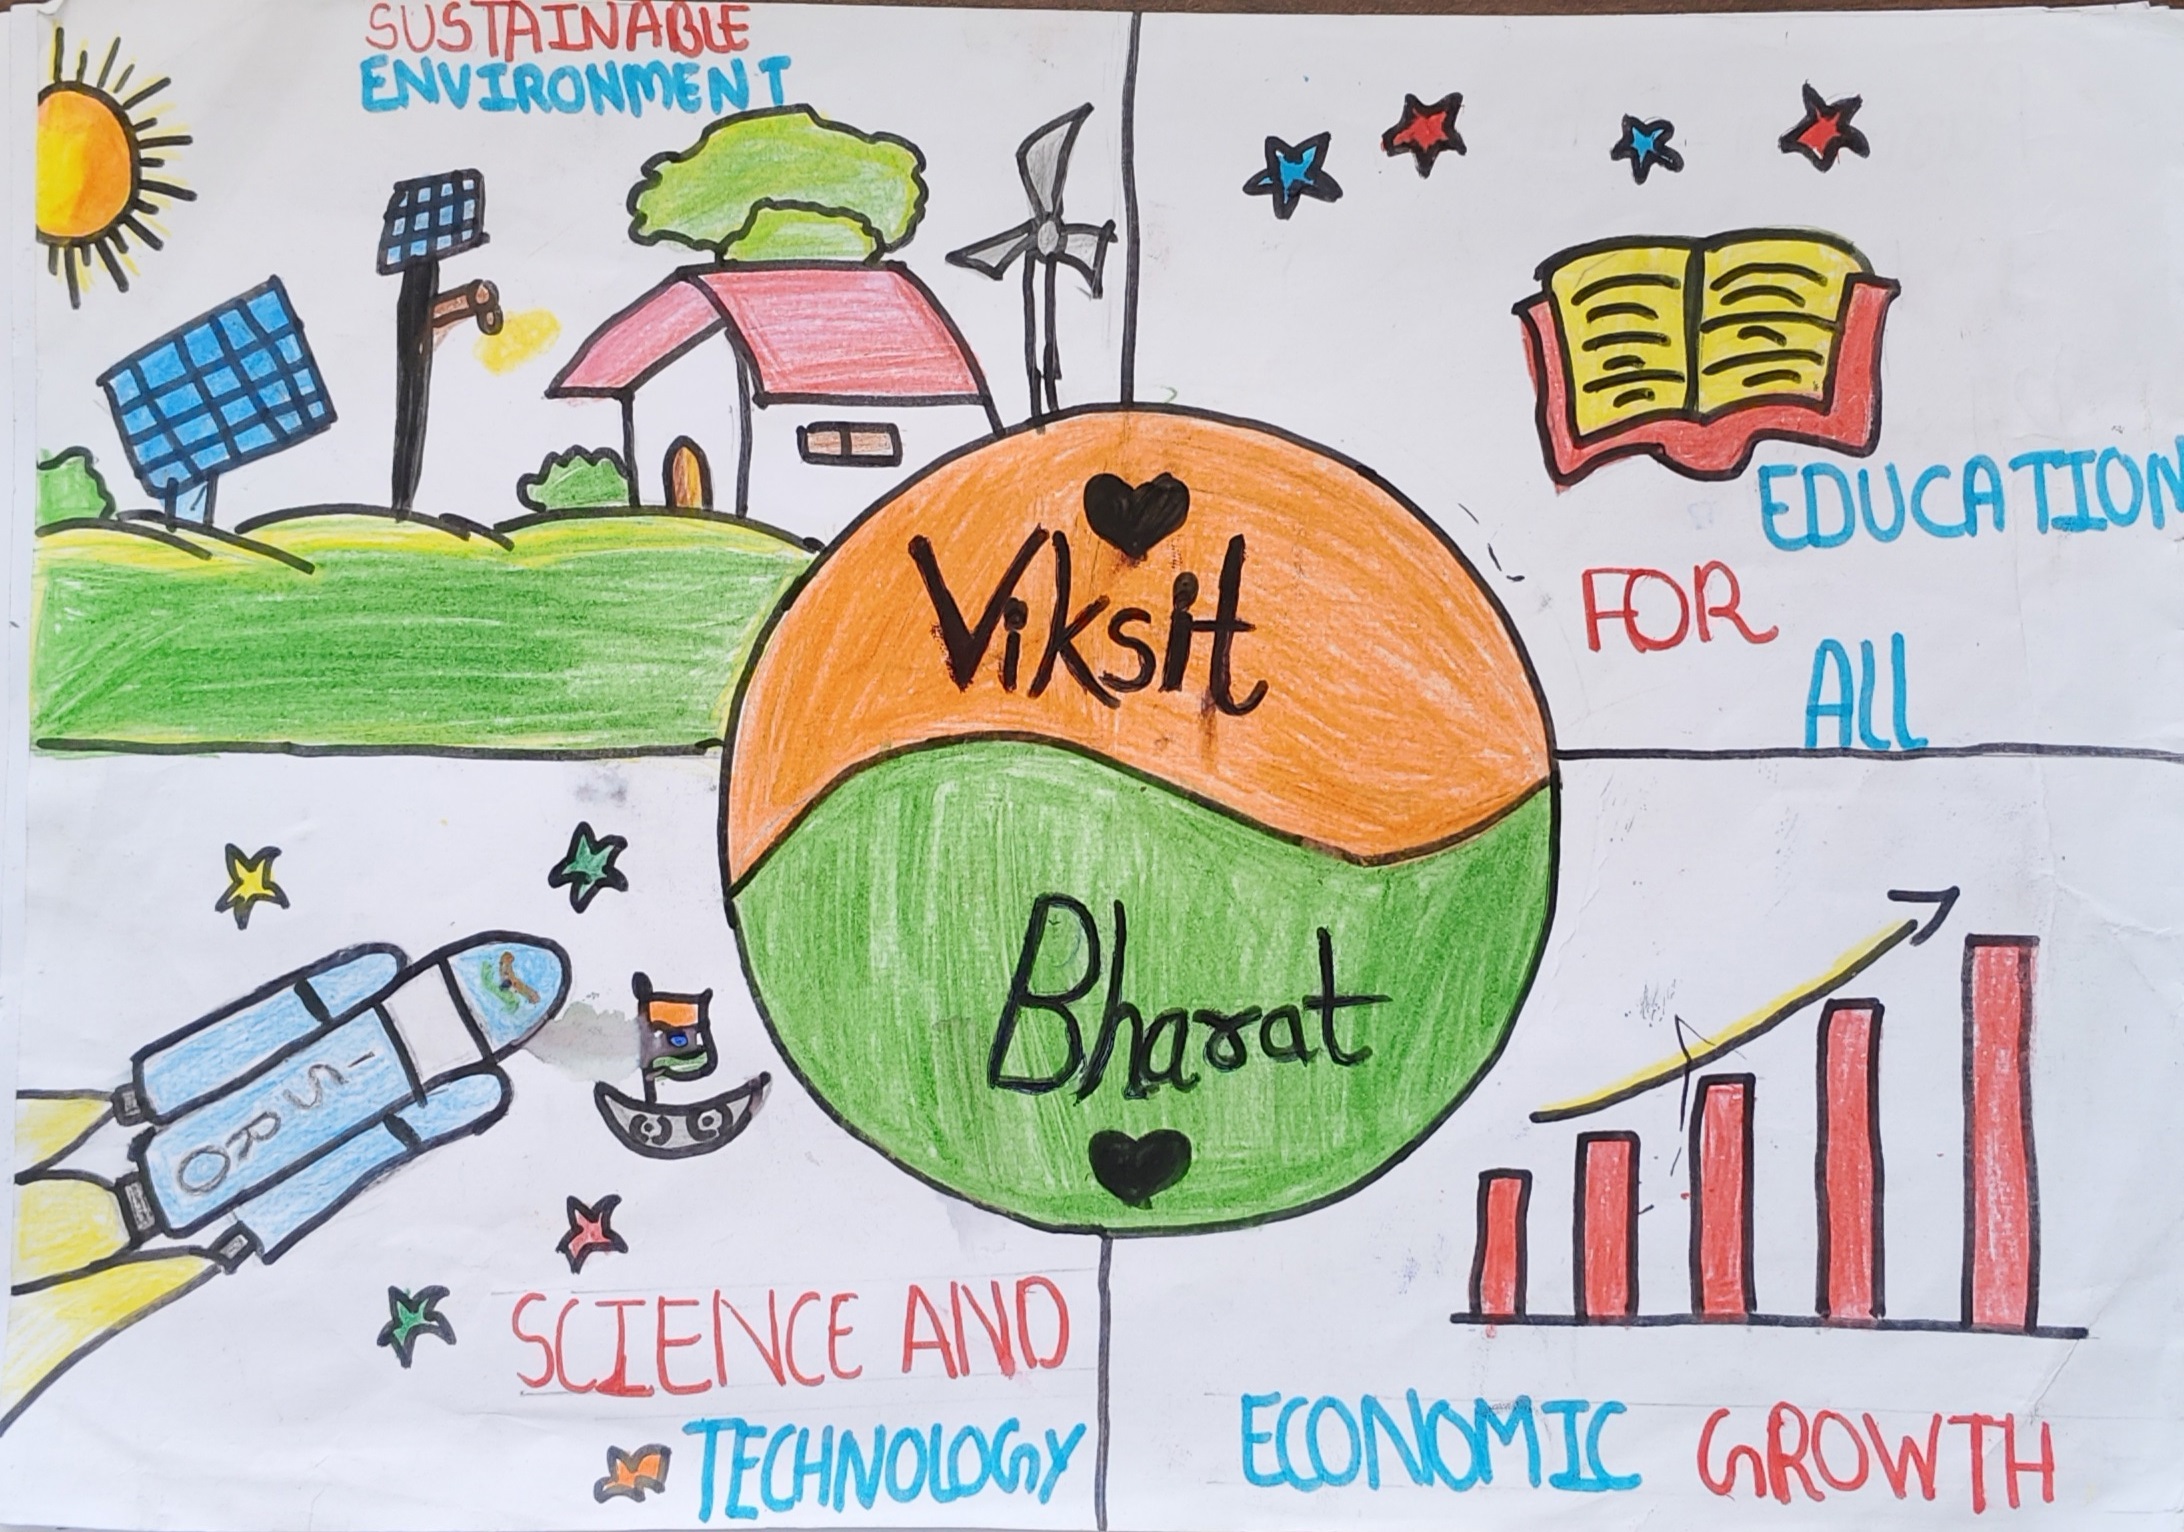 SUSTAINABLE
ENVIRONMENT
EDUCATION
FOR
ALL
Viksit
Bharat
ISRO
SCIENCE AND
TECHNOLOGY
ECONOMIC GROWTH